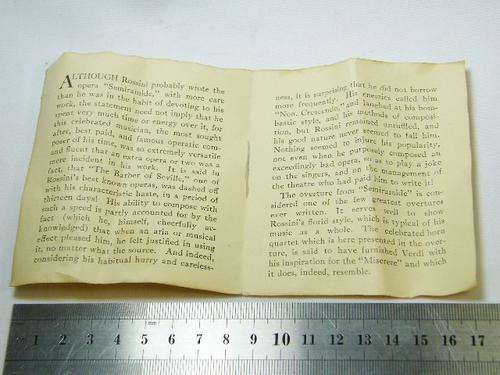 ALTHOUGH Rossini probably wrote the
opera "Semiramide," with more care
than he was in the habit of devoting to his
work, the statement need not imply that he
spent very much time or energy over it, for
this celebrated musician, the most sought
after, best paid, and famous operatic com-
poser of his time, was so extremely versatile
and fluent that an extra opera or two was a
mere incident in his work. It is said in
fact, that "The Barber of Seville," one of
Rossini's best known operas, was dashed off
with his characteristic haste in a period of
thirteen days! His ability to compose with
such a speed is partly accounted for by the
fact (which he, himself, cheerfully ac-
knowledged) that when an aria or musical
effect pleased him, he felt justified in using
it, no matter what the source. And indeed,
considering his habitual hurry and careless-
ness, it is surprising that he did not borrow
more frequently. His enemies called him
"Non. Crescendo," and laughed at his bom-
bastic style, and his methods of composi-
tion, but Rossini remained unruffled, and
his good nature never seemed to fail him.
Nothing seemed to injure his popularity,
not even when he purposely composed an
exceedingly bad opera, so as to play a joke
on the singers, and on the management of
the theatre who had paid him to write it!
The overture from "Semiramide" is con-
sidered one of the few greatest overtures
ever written. It serves well to show
Rossini's florid style, which is typical of his
music as a whole. The celebrated horn
quartet which is here presented in the over-
ture, is said to have furnished Verdi with
his inspiration for the "Miserere" and which
it does, indeed, resemble.
1 2 3 4 5 6 7 8 9 10 11 12 13 14 15 16 17